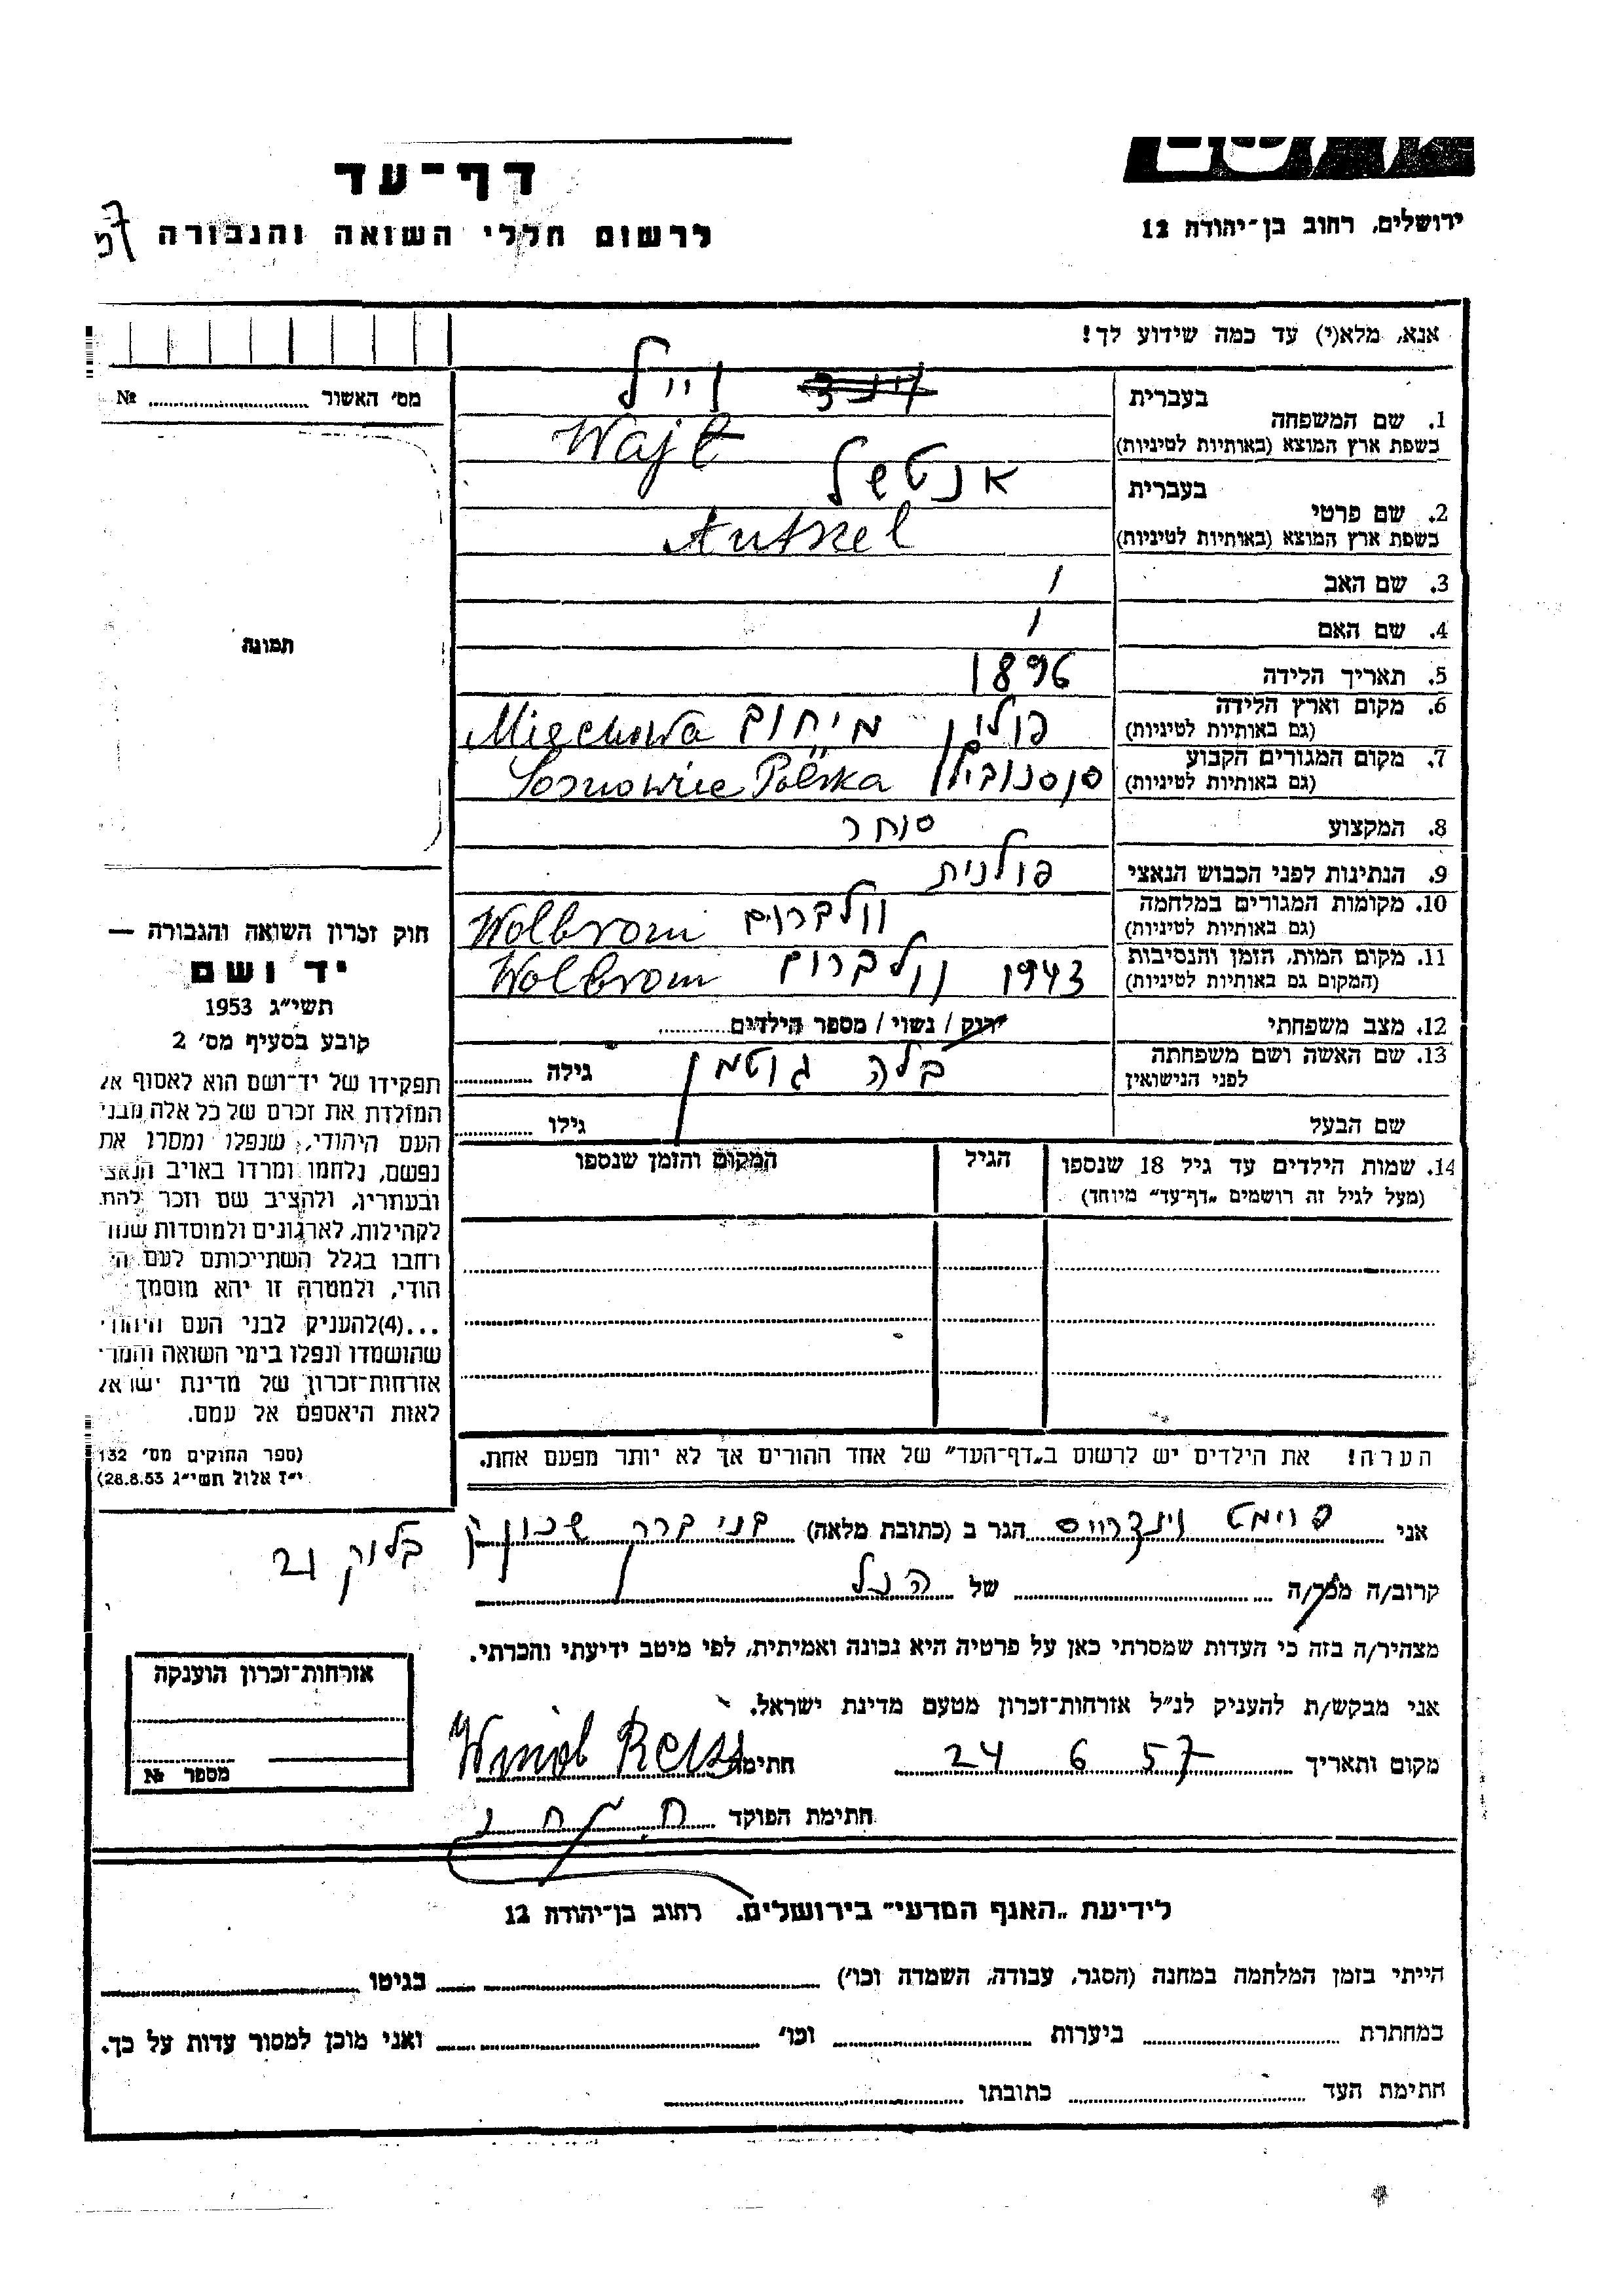 ירושלים, רחוב בן-יהודה 12
דף-עד
לרשום חללי השואה והגבורה
אנא, מלא(י) עד כמה שידוע לך!
מס' האשור № 
1. שם המשפחה
בעברית
בשפת ארץ המוצא (באותיות לטיניות)
2. שם פרטי
בעברית אנטשל
בשפת ארץ המוצא (באותיות לטיניות) Antszel
3. שם האב
4. שם האם
5. תאריך הלידה 1896
6. מקום וארץ הלידה
(גם באותיות לטיניות) פולין מיחוב Miechowa
7. מקום המגורים הקבוע
(גם באותיות לטיניות) Polska
8. המקצוע סוחר
9. הנתינות לפני הכבוש הנאצי פולנית
10. מקומות המגורים במלחמה
(גם באותיות לטיניות) וולברום Wolbrom
11. מקום המות, הזמן והנסיבות
(המקום גם באותיות לטיניות) 1943 וולברום Wolbrom
12. מצב משפחתי רווק / נשוי / מספר הילדים
13. שם האשה ושם משפחתה
לפני הנישואין בלה גוטמן גילה
שם הבעל גילו
14. שמות הילדים עד גיל 18 שנספו
(מעל לגיל זה רושמים „דף-עד" מיוחד)
הגיל
המקום והזמן שנספו
הערה! את הילדים יש לרשום ב„דף-העד" של אחד ההורים אך לא יותר מפעם אחת.
תמונה
חוק זכרון השואה והגבורה —
יד ושם
תשי"ג 1953
קובע בסעיף מס' 2
תפקידו של יד-ושם הוא לאסוף אל
המולדת את זכרם של כל אלה מבני
העם היהודי, שנפלו ומסרו את
נפשם, נלחמו ומרדו באויב הנאצי
ובעוזריו, ולהציב שם וזכר להם,
לקהילות, לארגונים ולמוסדות שנח
רחבו בגלל השתייכותם לעם הי
הודי, ולמטרה זו יהא מוסמך
...(4)להעניק לבני העם היהודי
שהושמדו ונפלו בימי השואה והמרי
אזרחות-זכרון של מדינת ישראל
לאות היאספם אל עמם.
(ספר החוקים מס' 132
י"ז אלול תשי"ג 28.8.53)
אני הגר ב (כתובת מלאה) בני ברק שכון ק בלוק 21
קרוב/ה מכר/ה של הנ"ל
מצהיר/ה בזה כי העדות שמסרתי כאן על פרטיה היא נכונה ואמיתית, לפי מיטב ידיעתי והכרתי.
אני מבקש/ת להעניק לנ"ל אזרחות-זכרון מטעם מדינת ישראל.
מקום ותאריך 24 6 57 חתימה
חתימת הפוקד
אזרחות-זכרון הוענקה
מספר №
לידיעת „האגף המדעי" בירושלים. רחוב בן-יהודה 12
הייתי בזמן המלחמה במחנה (הסגר, עבודה, השמדה וכו') בגיטו
במחתרת ביערות וכו' ואני מוכן למסור עדות על כך.
חתימת העד כתובתו